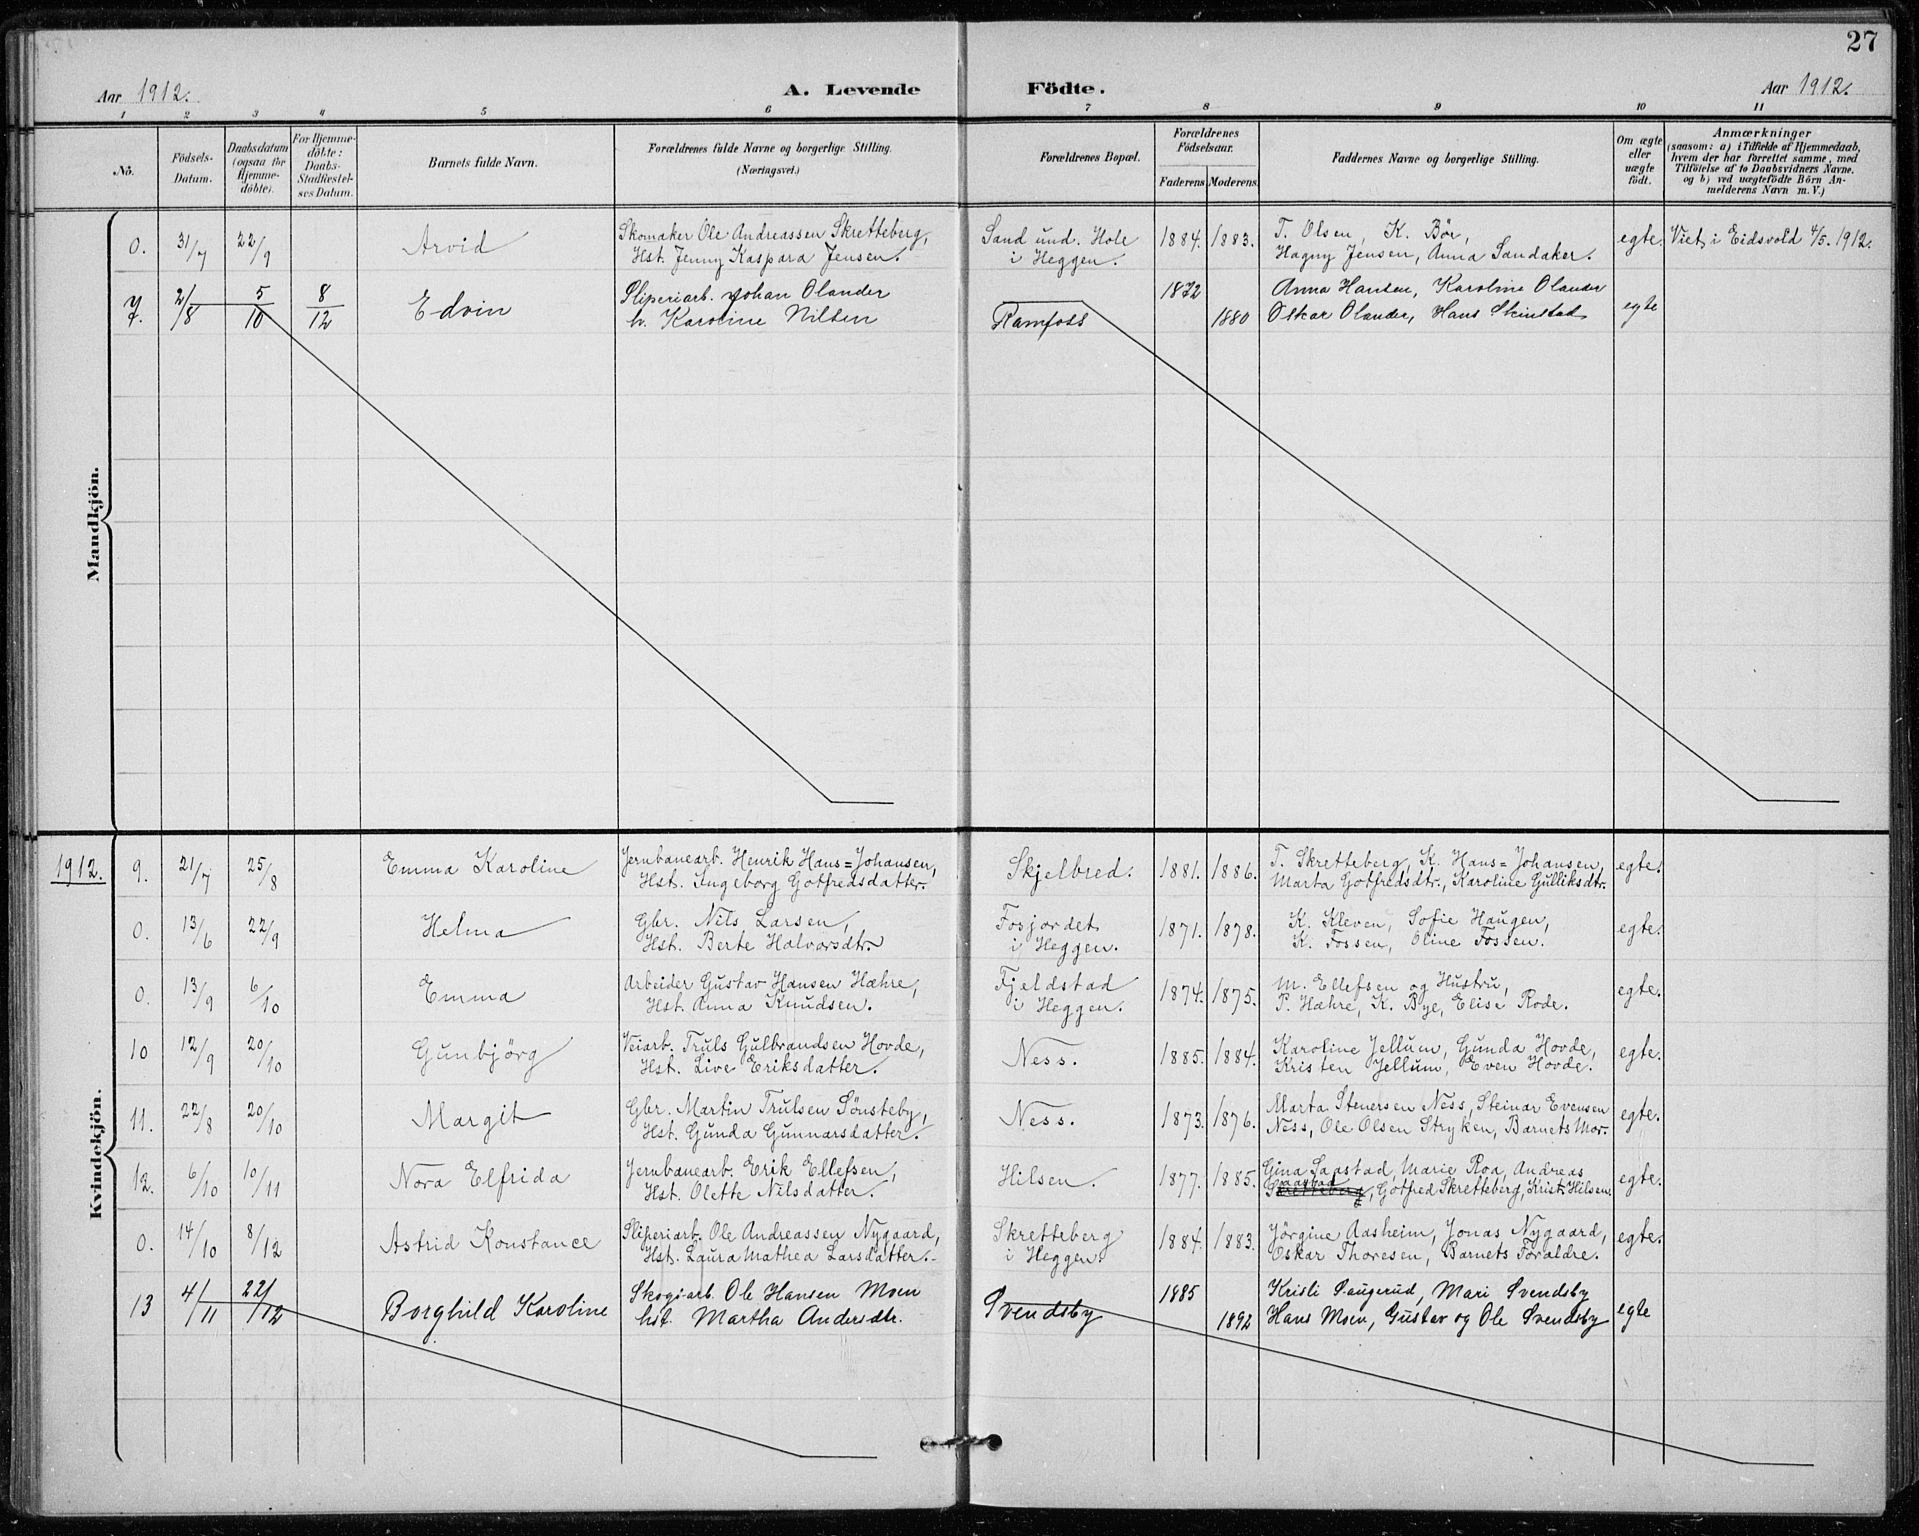 27
Aar 1912.
A. Levende Födte.
Aar 1912.
1 2 3 4 5 6 7 8 9 10 11
No.
Födsels-Datum.
Daabsdatum (ogsaa for Hjemme-döbte).
For Hjemme-döbte: Daabs-Stadfæstel-ses Datum.
Barnets fulde Navn.
Forældrenes fulde Navne og borgerlige Stilling.
(Næringsvei.)
Forældrenes Bopæl.
Forældrenes Födselsaar.
Faderens Moderens
Faddernes Navne og borgerlige Stilling.
Om ægte eller uægte födt.
Anmærkninger
(saasom: a) i Tilfælde af Hjemmedaab,
hvem der har forrettet samme, med
Tilföielse af to Daabsvidners Navne.
og b) ved uægtefödte Börn An-
melderens Navn m. V.)
Mandkjön.
0. 31/7 22/9 Arvid Skomaker Ole Andreassen Skretteberg, Sand und. Hole 1884. 1883. T. Olsen, K. Bör, egte. Viet i Eidsvold 4/5. 1912.
Hst. Jenny Kaspara Jensen. i Heggen. Hagny Jensen, Anna Sandaker.
7. 2/8 5/10 8/12 Edvin Sliperiarb. Johan Olander Ramfoss 1872 Anna Hansen, Karoline Olander egte
h. Karoline Nilsen 1880 Oskar Olander, Hans Skinstad
Kvindekjön.
1912. 9. 21/7 25/8 Emma Karoline Jernbanearb. Henrik Hans=Johansen, Skjelbred. 1881. 1886. T. Skretteberg, K. Hans=Johansen, egte.
Hst. Ingeborg Gotfredsdatter. Marta Gotfredsdtr., Karoline Gulliksdtr.
0. 13/6 22/9 Helma Gbr. Nils Larsen, Fosjordet 1871. 1878. K. Kleven, Sofie Haugen, egte.
Hst. Berte Halvorsdtr. i Heggen. K. Fossen, Oline Fossen.
0. 13/9 6/10 Emma Arbeider Gustav Hansen Hæhre, Fjeldstad 1874. 1875. M. Ellefsen og Hustru, egte.
Hst. Anna Knudsen. i Heggen. P. Hæhre, K. Bye, Elise Rode.
10 12/9 20/10 Gunbjörg Veiarb. Truls Gulbrandsen Hovde, Ness. 1885. 1884. Karoline Jellum, Gunda Hovde, egte.
Hst. Live Eriksdatter. Kristen Jellum, Even Hovde.
11. 22/8 20/10 Margit Gbr. Martin Trulsen Sönsteby, Ness. 1873. 1876. Marta Stenersen Ness, Steinar Evensen egte.
Hst. Gunda Gunnarsdatter. Ness, Ole Olsen Stryken, Barnets Mor.
12. 6/10 10/11 Nora Elfrida Jernbanearb. Erik Ellefsen, Hilsen. 1877. 1885. Gina Saastad, Marie Roa, Andreas egte.
Hst. Olette Nilsdatter. Saastad, Gotfred Skretteberg, Krist. Hilsen.
0. 14/10 8/12 Astrid Konstance Sliperiarb. Ole Andreassen Nygaard, Skretteberg 1884. 1883. Jörgine Aasheim, Jonas Nygaard, egte.
Hst. Laura Mathea Larsdatter. i Heggen. Oskar Thoresen, Barnets Foraldre.
13 4/11 22/12 Borghild Karoline Skogsarb. Ole Hansen Moen Svendsby 1885 Kristi Saugerud, Mari Svendsby egte
hst. Martha Andersdtr. 1892 Hans Moen, Gustav og Ole Svendsby